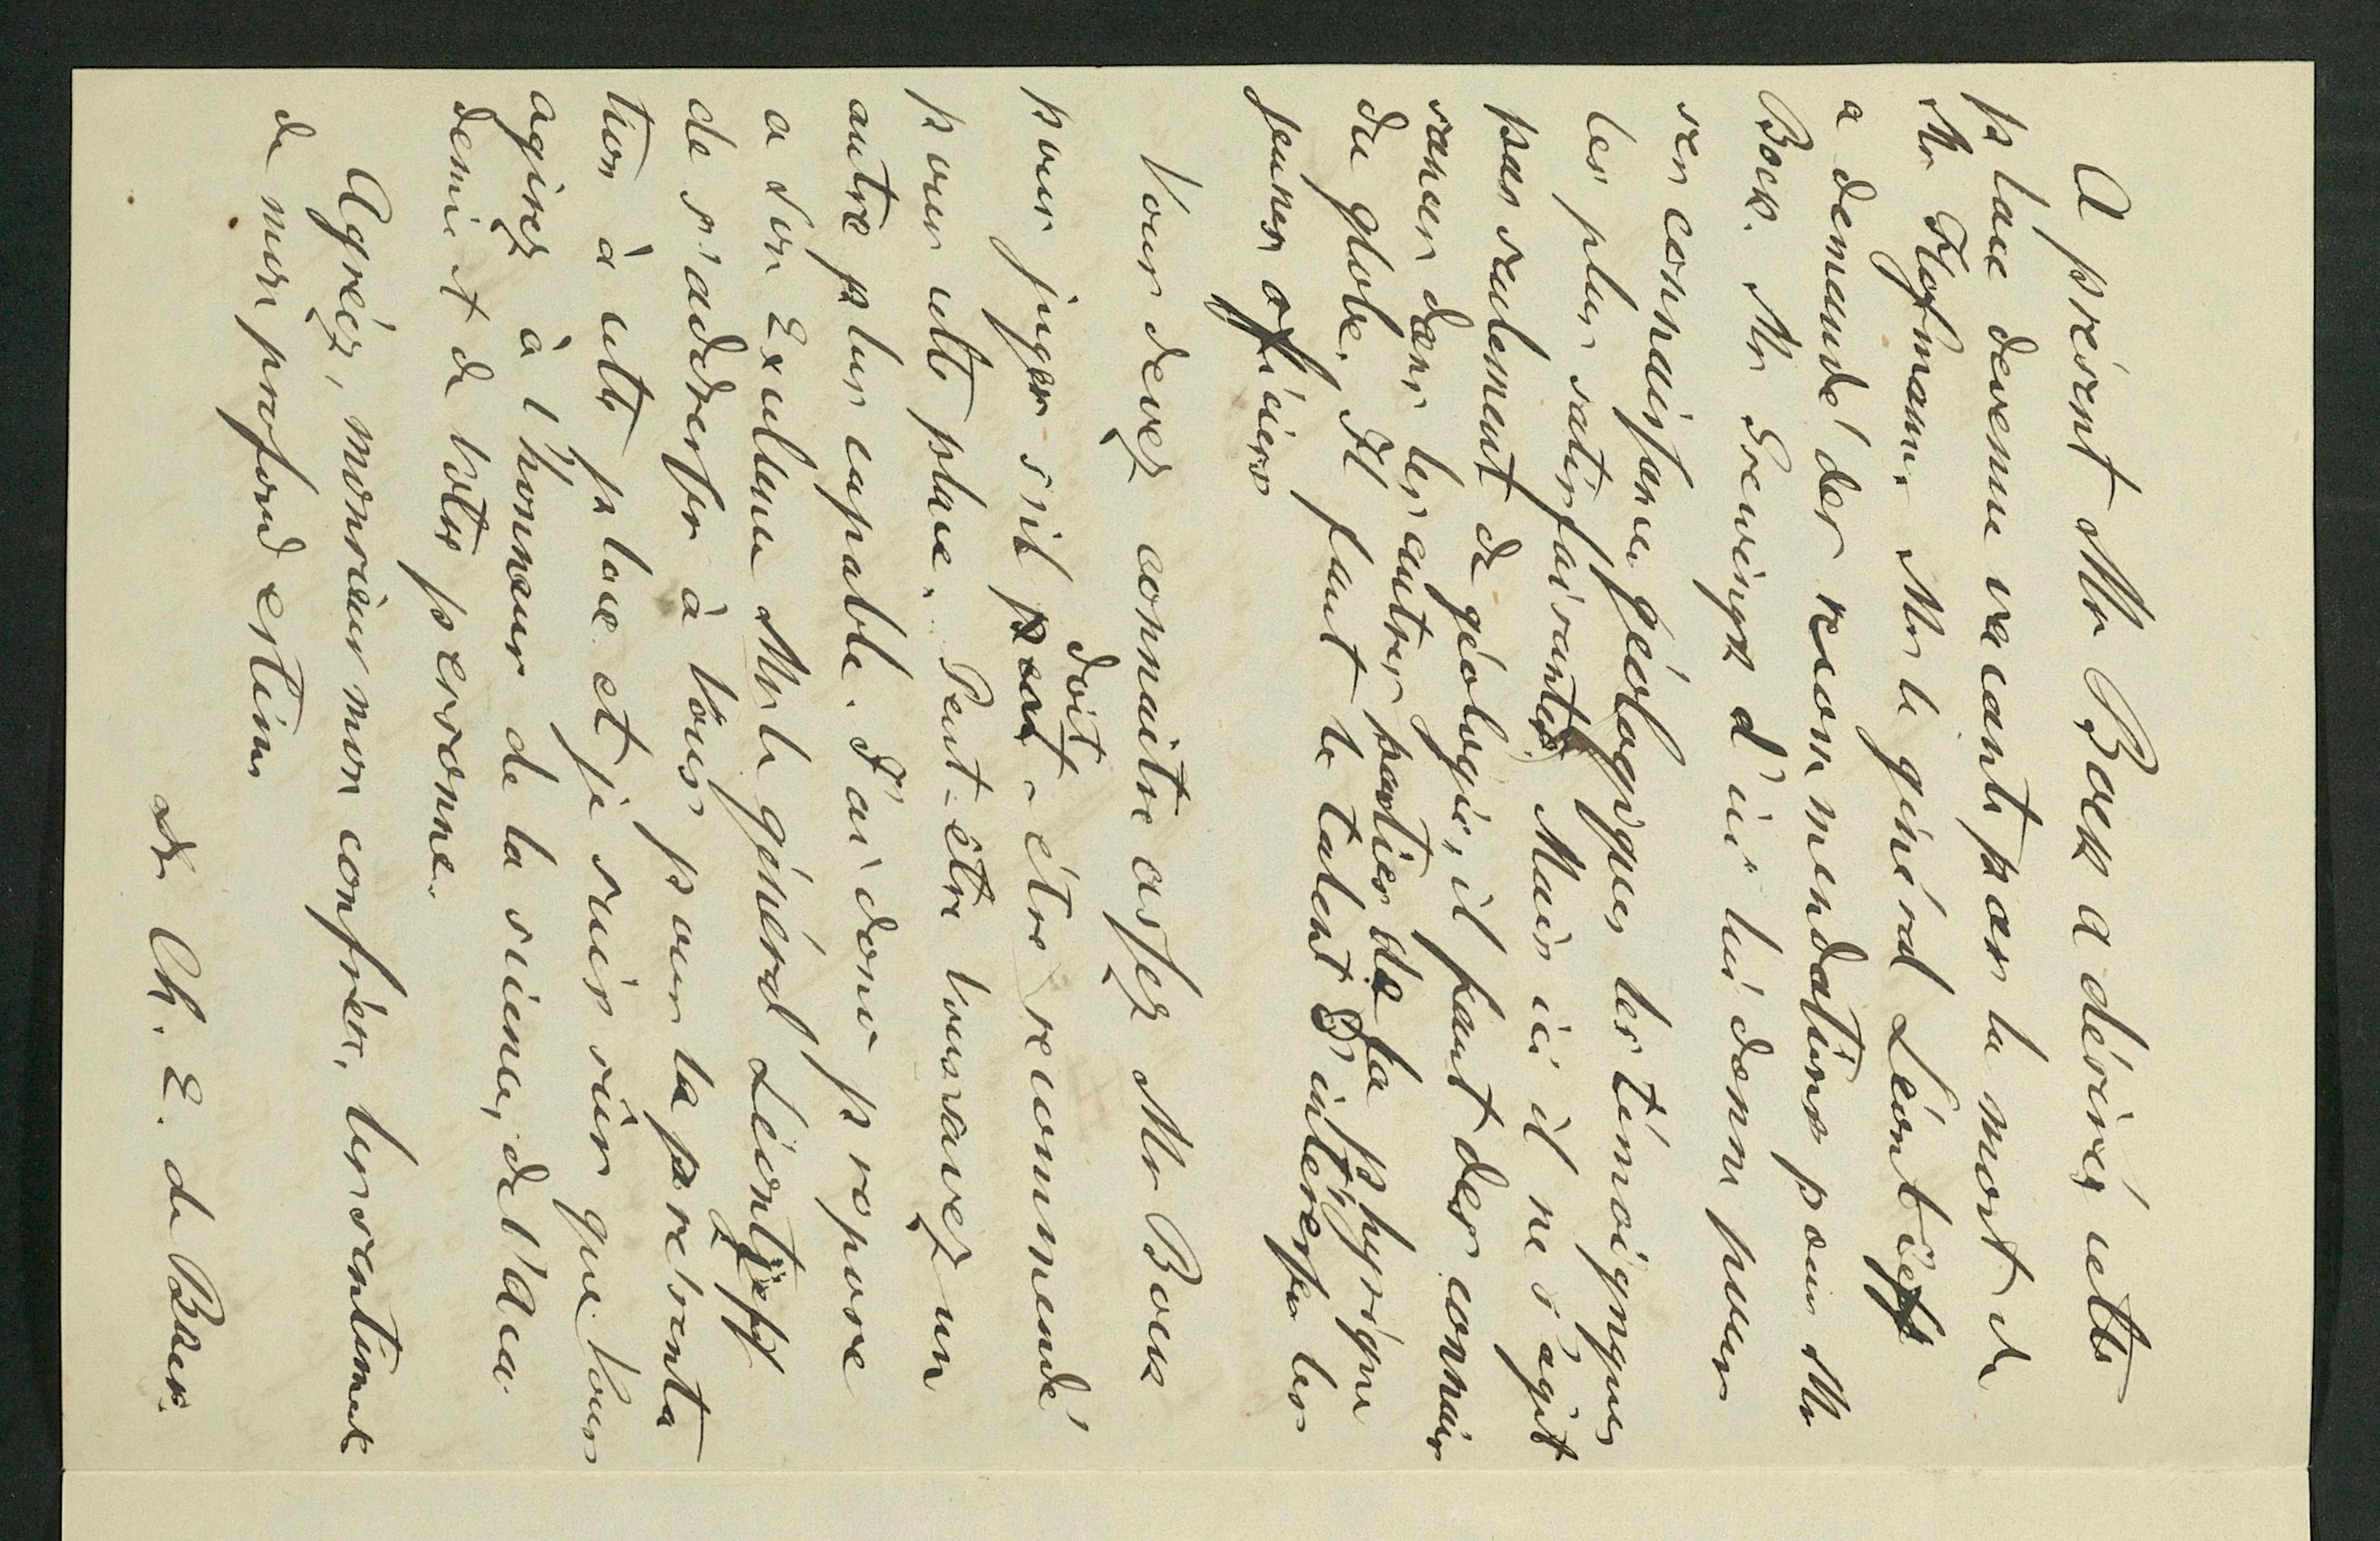 A présent Mr Bock a désirée cette
place devenue vacante par la mort de
Mr Hofmann. Mr le général Léontieff
a demandé des recommendations pour Mr
Bock. Mr Grewingk d'ici lui donne pour
ses connaissances géologiques les témoignages
les plus satisfaisantes. Mais ici il ne s'agit
pas seulement de géologie, il faut des connais
sances dans les autres parties de la physique
du globe. Il faut le talent d'interesser les
jeunes officiers
Vous devez connaitre assez Mr Bock
pour juger s'il peut doit - être recommendé
pour cette place. Peut-être vous savez un
autre plus capable. J'ai donc propose
a Son Excellence Mr le général Léontjeff
de s'addresser à Vous pour la présenta
tion à cette place et je suis sûr que Vous
agirez à l'honneur de la science, de l'Aca
demie et de Votre personne.
Agréez, monsieur mon confrère, les sentiments
de mon profond estime
Dr Ch. E. de Baer.